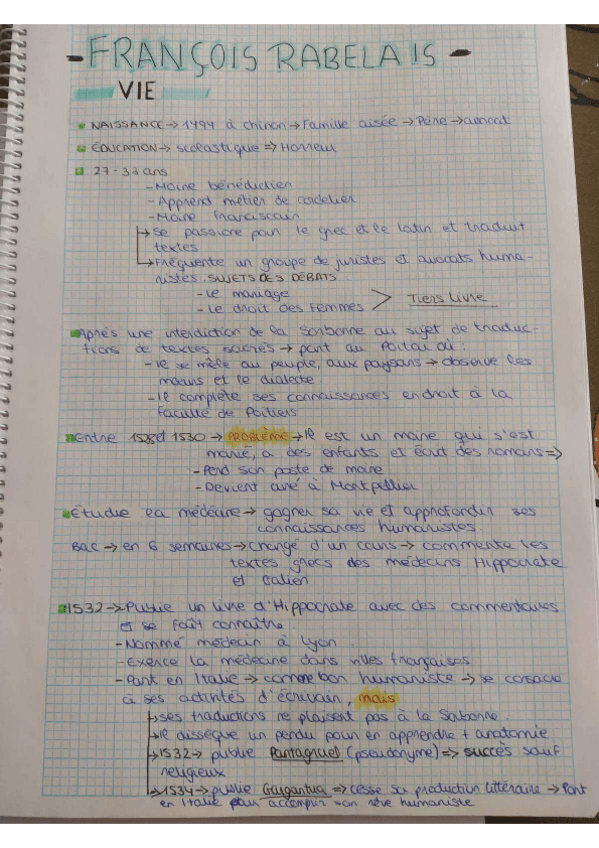 - FRANÇOIS RABELAIS -
VIE
NAISSANCE → 1494 à chinon → Famille aisée → Père → avocat
ÉDUCATION → scolastique => Horreur
27-33 ans
- Moine bénédictien
- Apprend métier de cordelier
- Moine franciscain
→ Se passione pour le grec et le latin et traduit
textes
→ Fréquente un groupe de juristes et avocats huma-
nistes. SUJETS DES DÉBATS
- Le mariage
- Le droit des Femmes > Tiers Livre
Après une interdiction de la Sorbonne au sujet de traduc-
tions de textes sacrés → part au Poitai où :
- Il se mêle au peuple, aux paysans → observe les
mœurs et le dialecte
- Il complète ses connaissances en droit à la
Faculté de Poitiers
Entre 1528 et 1530 → PROBLÈME → Il est un moine qui s'est
marié, a des enfants et écrit des romans =>
- Perd son poste de moine
- Devient curé à Montpellier
Étudie la médecine → gagner sa vie et approfondir ses
connaissances humanistes
BAC → en 6 semaines → chargé d'un cours → commente les
textes grecs des médecins Hippocrate
et Galien
1532 → Publie un livre d'Hippocrate avec des commentaires
et se fait connaître
- Nommé médecin à Lyon
- Exerce la médecine dans villes françaises
- Part en Italie → comme bon humaniste → se consacre
à ses activités d'écrivain, mais
→ ses traductions ne plaisent pas à la Sorbonne
→ Il dissèque un pendu pour en apprendre + anatomie
→ 1532 → publie Pantagruel (pseudonyme) => succès sauf
religieux
→ 1534 → publie Gargantua => cesse sa production littéraire → Part
en Italie pour accomplir son rêve humaniste